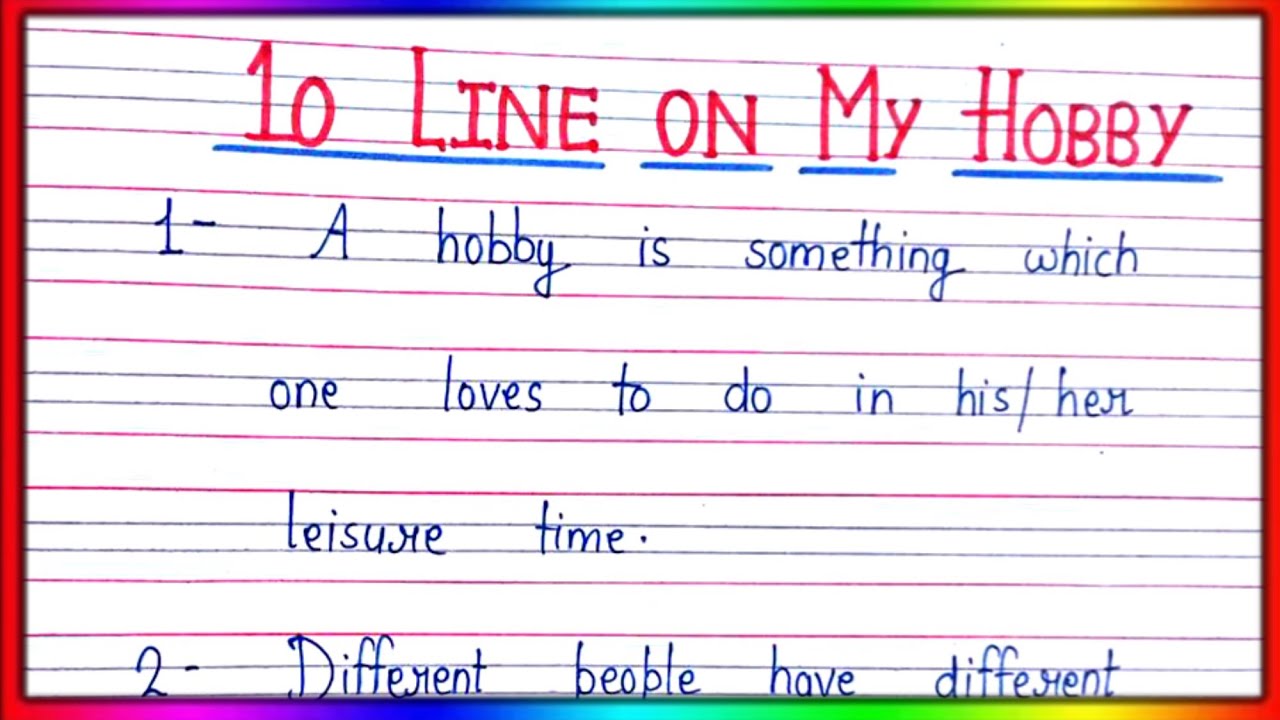 10 LINE ON MY HOBBY
1- A hobby is something which
one loves to do in his/her
leisure time.
2- Different people have different